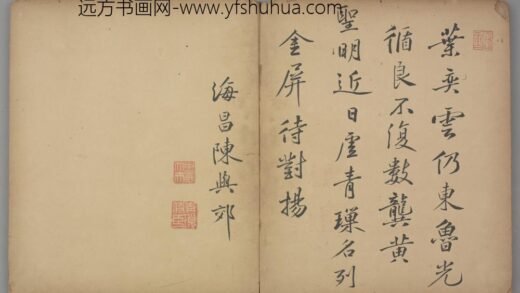 远方书画网-www.yfshuhua.com
葉奕雲仍東魯光
循良不復数龔黄
聖明近日虛青瑣名列
金屏待對揚
海昌陳與郊